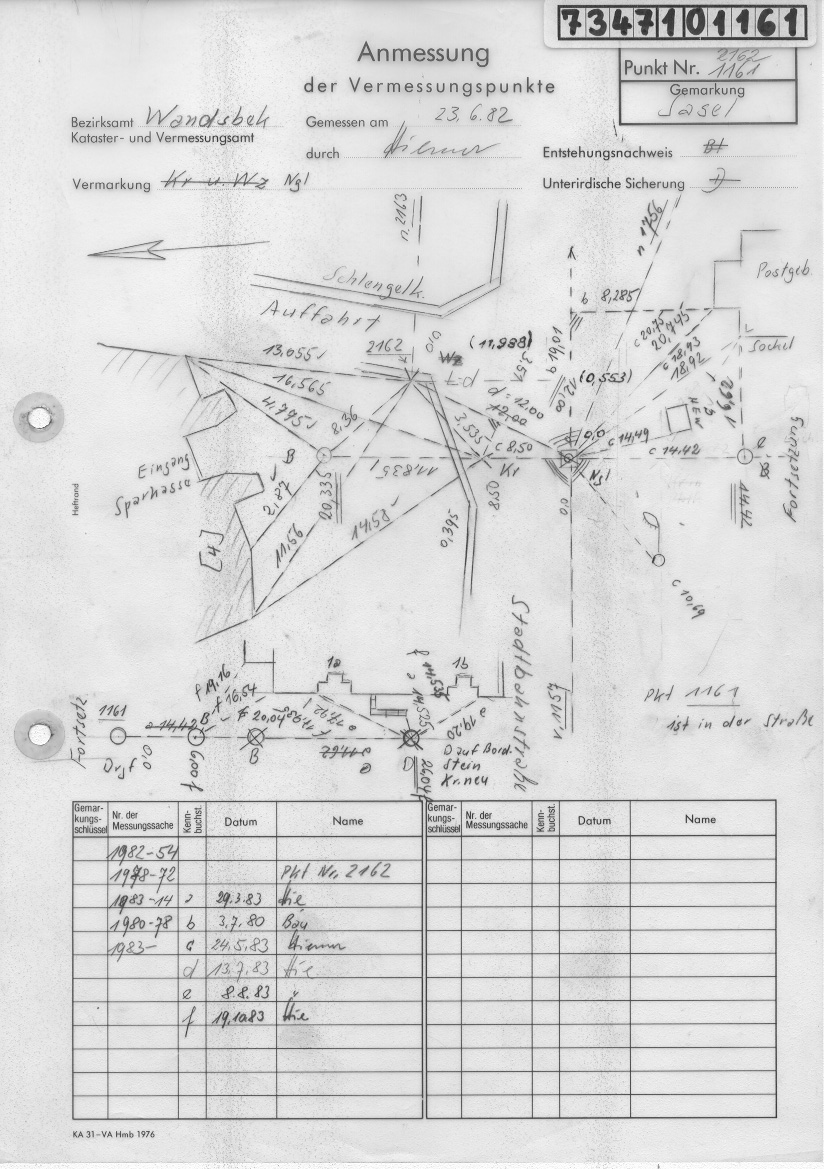 7347101161
Anmessung
der Vermessungspunkte
Punkt Nr. 2162
1161
Gemarkung
Sasel
Bezirksamt Wandsbek
Kataster- und Vermessungsamt
Gemessen am 23.6.82
durch Hiemer
Entstehungsnachweis Bl
Vermarkung Kr u. Wz Ngl
Unterirdische Sicherung
n. 2163
n. 1756
Schlengelk.
Auffahrt
b 8,285
Postgeb.
Sockel
13,055
2162
0,0
Wz
(11,988)
(0,553)
16,565
4,795
8,36
d = 12,00
12,00
3,535
c 8,50
Kr
c 20,75
20,745
c 18,93
18,92
NEU
c 14,49
c 14,42
0,0
Ngl
Eingang
Sparkasse
B
2,87
20,335
11,835
11,66
14,58
[4]
0,395
8,50
14,42
c 10,69
Heftrand
Stadtbahnstraße
n. 1157
Pkt 1161
ist in der Straße
1a
1b
f 19,16
f 16,54
Fortsetz
1161
14,42
B
f 20,04
B
D
D auf Bord-
stein
Kr. neu
e 19,20
Gemar-
kungs-
schlüssel
Nr. der
Messungssache
Kenn-
buchst.
Datum
Name
Gemar-
kungs-
schlüssel
Nr. der
Messungssache
Kenn-
buchst.
Datum
Name
1982-54
1978-72 Pkt Nr. 2162
1983-14 a 29.3.83 Hie
1980-78 b 3.7.80 Bau
1983- c 24.5.83 Hiemer
d 13.7.83 Hie
e 8.8.83 "
f 19.10.83 Hie
KA 31-VA Hmb 1976